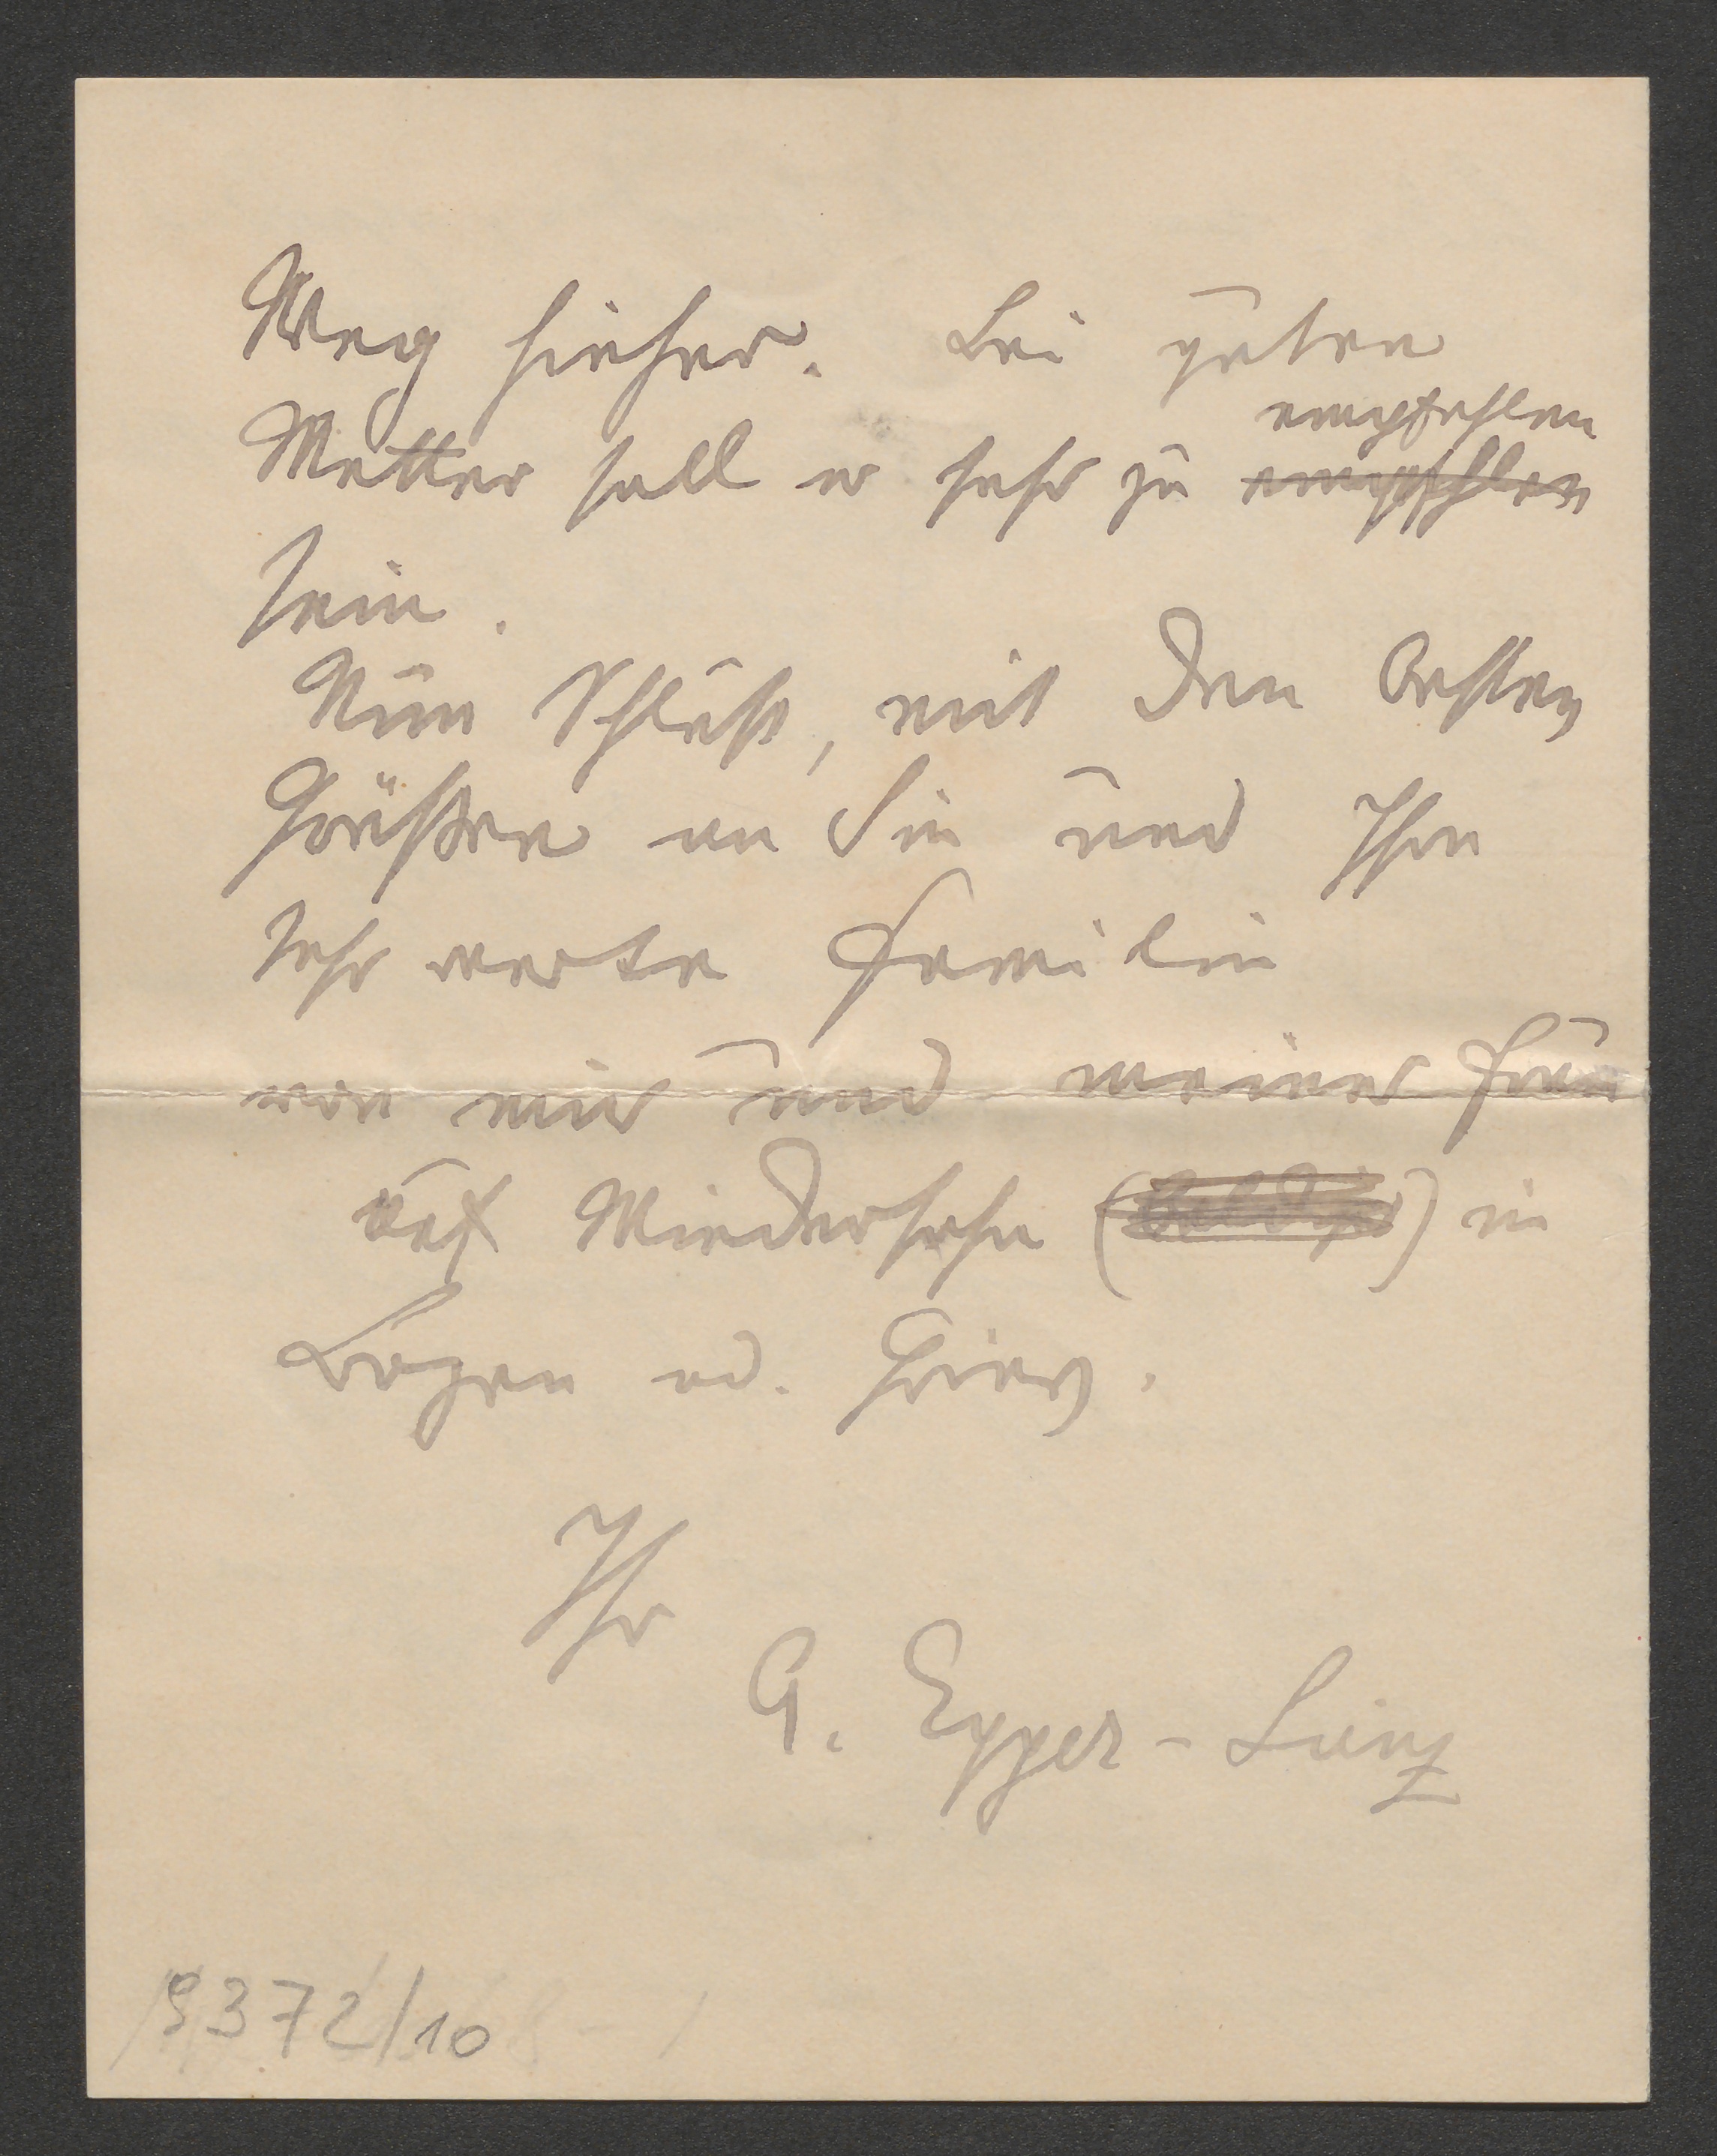 Weg hieher. Bei guten
empfehlen
Wetter soll er sehr zu empfehlen
sein.
Nun Schluß, mit den besten
Grüßen an Sie und Ihre
sehr werte Familie
von mir und meiner Frau
auf Wiedersehn (baldiges) in
Bozen od. Gries.
Ihr
A. Egger-Lienz
9372/10